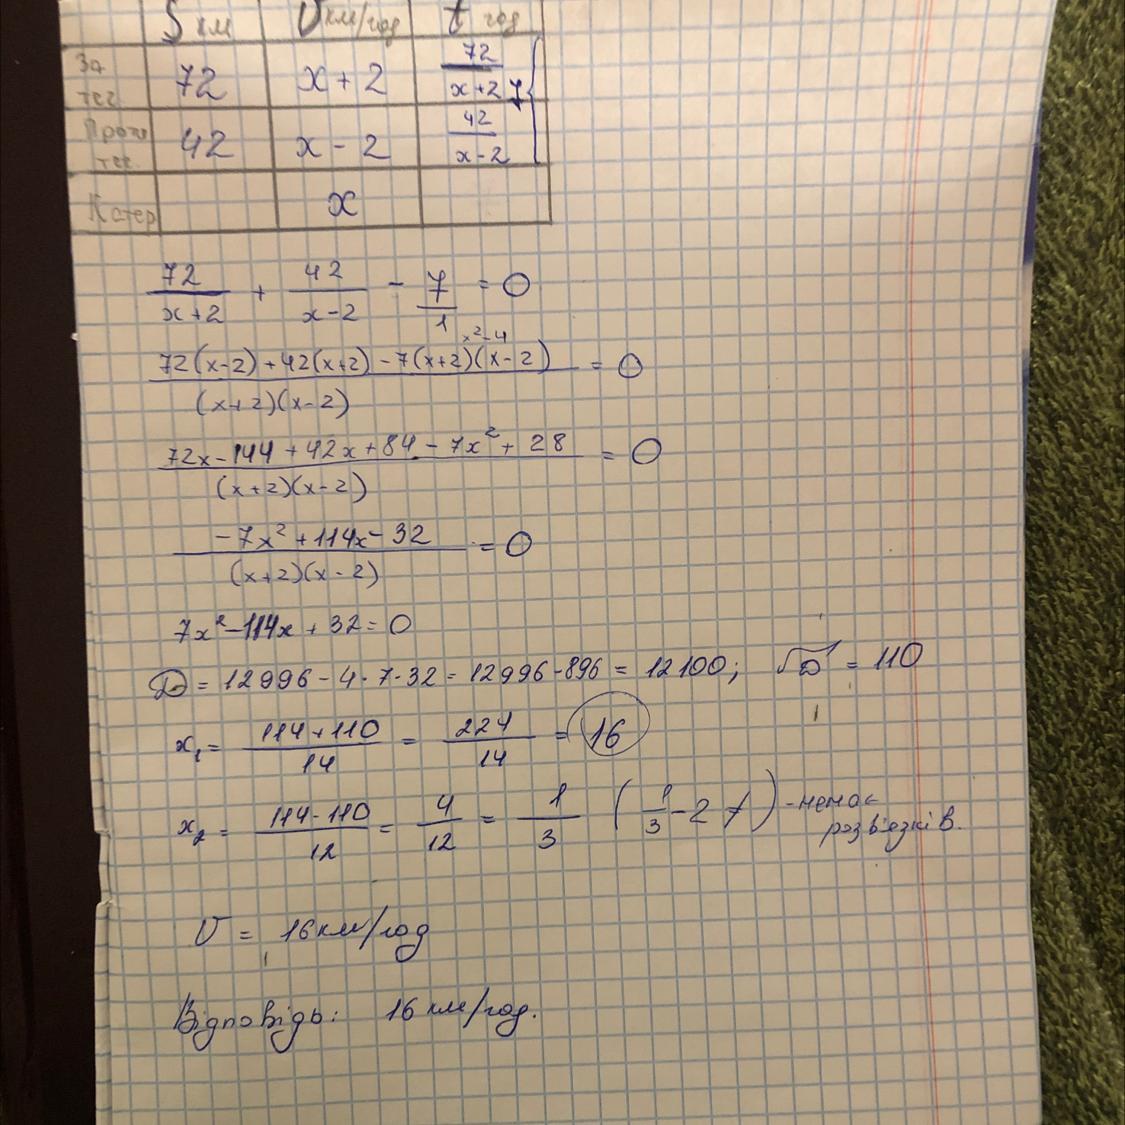 S км V км/год t год
За теч. 72 x + 2 72/(x+2)
Проти теч. 42 x - 2 42/(x-2) 7
Катер x
72/(x+2) + 42/(x-2) - 7/1 = 0
x²-4
(72(x-2) + 42(x+2) - 7(x+2)(x-2))/((x+2)(x-2)) = 0
(72x - 144 + 42x + 84 - 7x² + 28)/((x+2)(x-2)) = 0
(-7x² + 114x - 32)/((x+2)(x-2)) = 0
7x² - 114x + 32 = 0
D = 12996 - 4 · 7 · 32 = 12996 - 896 = 12100; √D = 110
x₁ = (114 + 110)/14 = 224/14 = 16
x₂ = (114 - 110)/12 = 4/12 = 1/3 (1/3 - 2 ≠) - немає
розв'язків.
V = 16 км/год
Відповідь: 16 км/год.